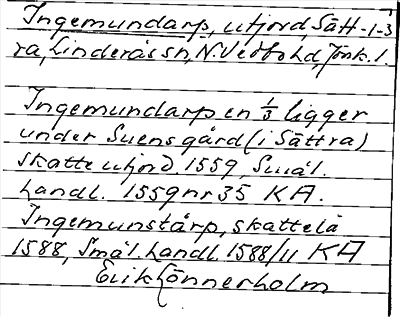 Ingemundarp, utjord, Sätt-1-3
ra, Linderås sn, N. Vedbo hd, Jönk. l.
Ingemundarp en 1/3 ligger
under Suensgård (i Sättra)
skatteutjord. 1559, Smål.
handl. 1559 nr 35 KA.
Ingemunstårp, skattelä
1588, Smål. handl. 1588/11 KA
Erik Lönnerholm